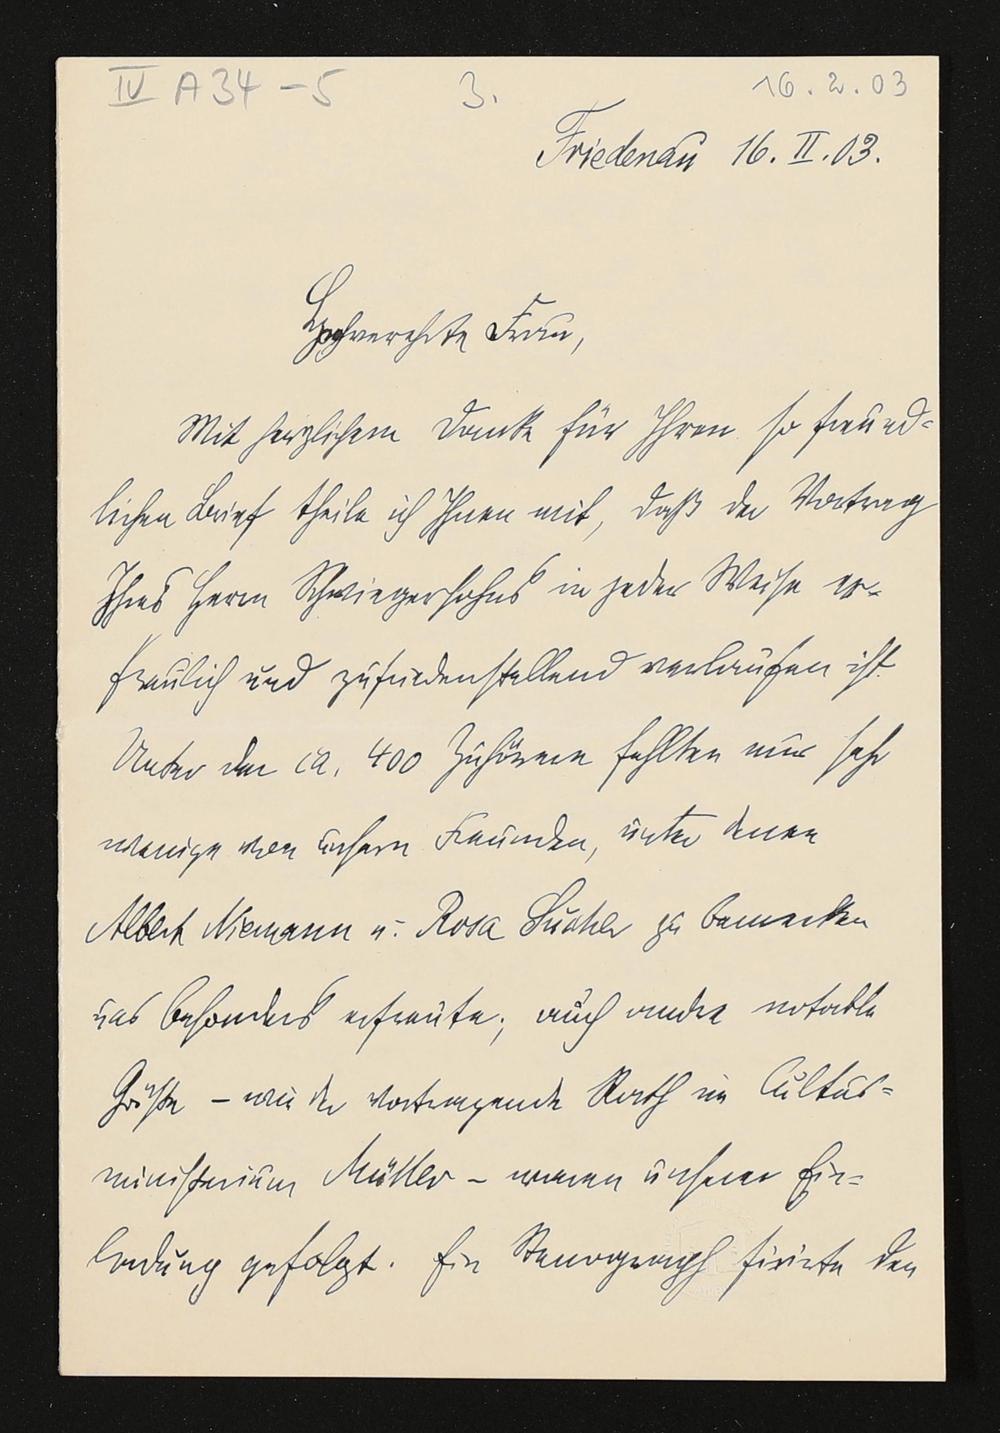 IV A 34 - 5 3. 16.2.03
Friedenau 16. II. 03.
Hochverehrte Frau,
Mit herzlichem Danke für Ihren so freund-
lichen Brief theile ich Ihnen mit, daß der Vortrag
Ihres Herrn Schwiegersohns in jeder Weise er-
freulich und zufriedenstellend verlaufen ist.
Unter den ca. 400 Zuhörern fehlten nur sehr
wenige von unsern Freunden, unter denen
Albert Niemann u. Rosa Sucher zu bemerken
uns besonders erfreute; auch andre notable
Größen – wie der vortragende Rath im Cultus-
ministerium Müller – waren unserer Ein-
ladung gefolgt. Ein Stenograph fixirte den